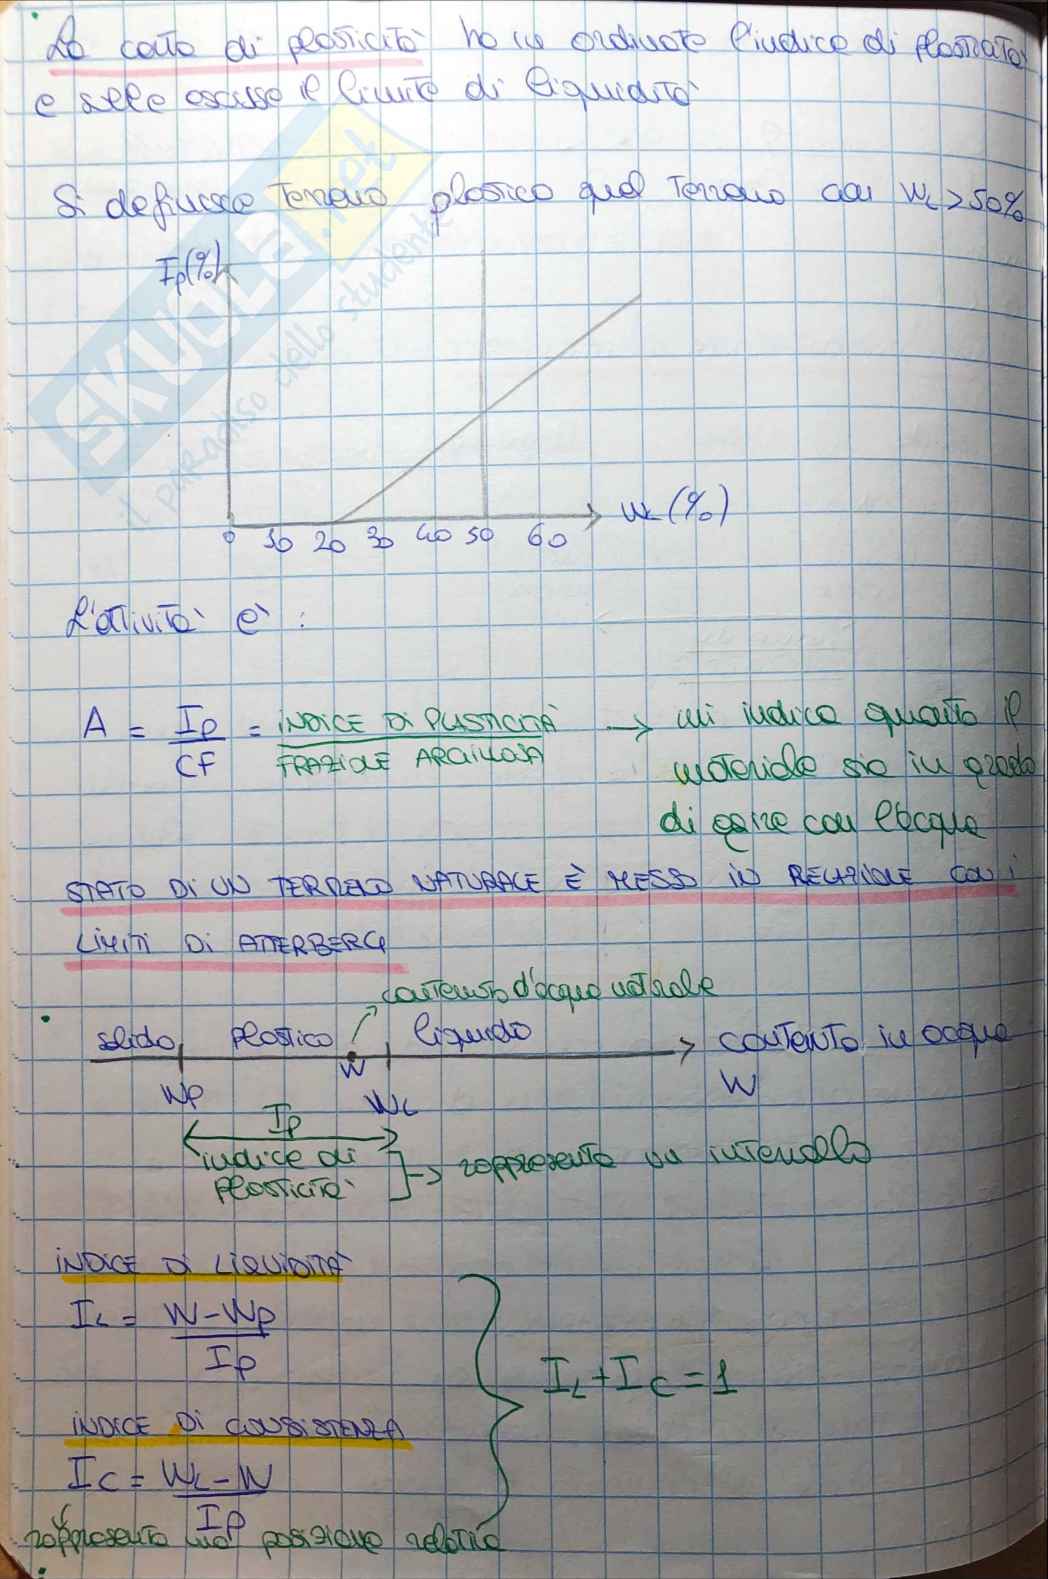 La carta di plasticità ha in ordinata l'indice di plasticità
e nelle ascisse il limite di liquidità
Si definisce terreno plastico quel terreno con WL > 50%
Ip(%)
WL (%)
0 10 20 30 40 50 60
L'attività è :
A = Ip/CF = INDICE DI PLASTICITÀ/FRAZIONE ARGILLOSA → mi indica quanto il
materiale sia in grado
di agire con l'acqua
STATO DI UN TERRENO NATURALE È MESSO IN RELAZIONE CON I
LIMITI DI ATTERBERG
contenuto d'acqua naturale
solido plastico liquido
contenuto in acqua
W
W
WP WL
Ip
indice di
plasticità
→ rappresenta un intervallo
INDICE DI LIQUIDITÀ
IL = W-WP/Ip
IL + IC = 1
INDICE DI CONSISTENZA
IC = WL-W/Ip
rappresenta una posizione relativa
SKUOLA.net
il paradiso dello studente